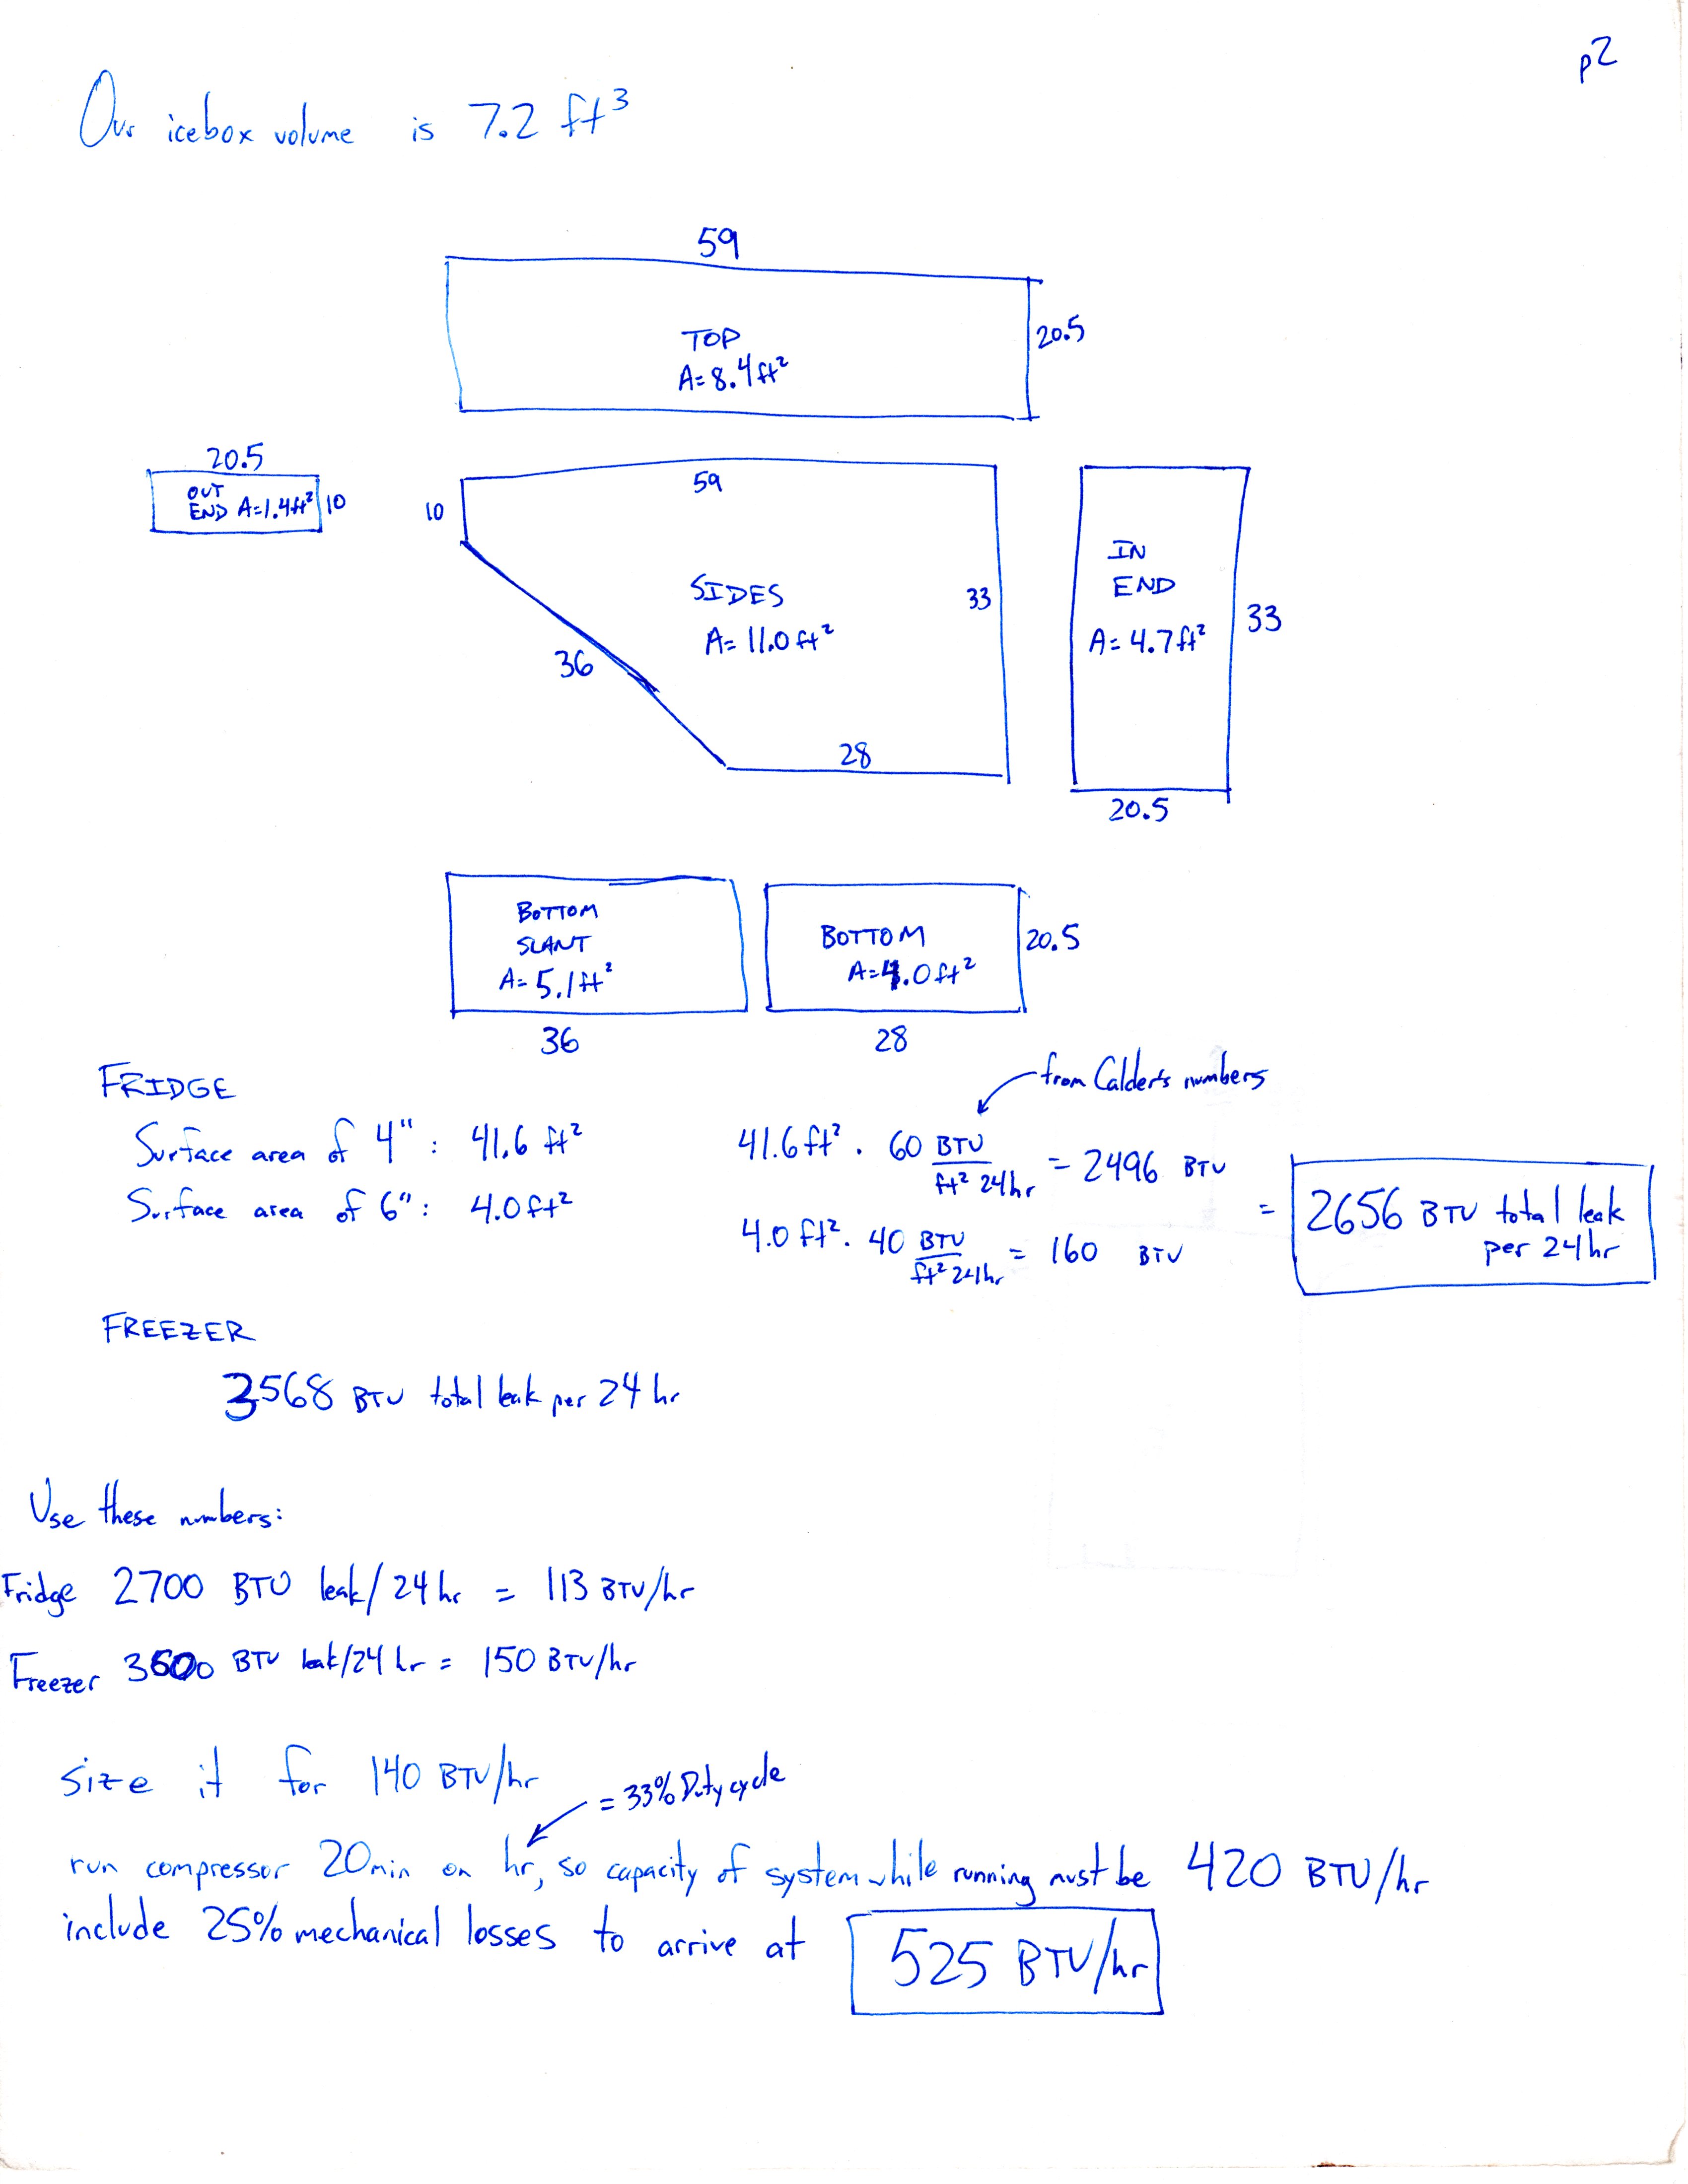 p2
Our icebox volume is 7.2 ft³
59
TOP
A=8.4ft²
20.5
20.5
OUT
END A=1.4ft²
10
10
59
SIDES
A= 11.0 ft²
33
36
28
IN
END
A= 4.7ft²
33
20.5
BOTTOM
SLANT
A= 5.1ft²
36
BOTTOM
A=4.0ft²
20.5
28
FRIDGE
from Calder's numbers
Surface area of 4" : 41.6 ft²
41.6ft² · 60 BTU/ft² 24hr = 2496 BTU
Surface area of 6" : 4.0ft²
4.0 ft² · 40 BTU/ft² 24hr = 160 BTU
= 2656 BTU total leak
per 24hr
FREEZER
3568 BTU total leak per 24 hr
Use these numbers:
Fridge 2700 BTU leak/24hr = 113 BTU/hr
Freezer 3600 BTU leak/24 hr = 150 BTU/hr
Size it for 140 BTU/hr
= 33% Duty cycle
run compressor 20min on hr, so capacity of system while running must be 420 BTU/hr
include 25% mechanical losses to arrive at 525 BTU/hr